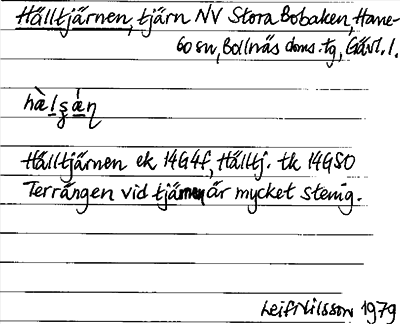 Hälltjärnen, tjärn NV Stora Bobaken, Hane-
bo sn, Bollnäs doms. tg, Gävl. l.
hàlʂä́ɳ
Hälltjärnen ek 14G4f, Hälltj. tk 14GSO
Terrängen vid tjärnen är mycket stenig.
Leif Nilsson 1979